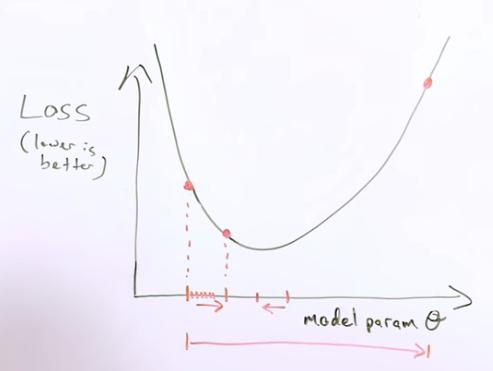 Loss
(lower is
better)
model param θ